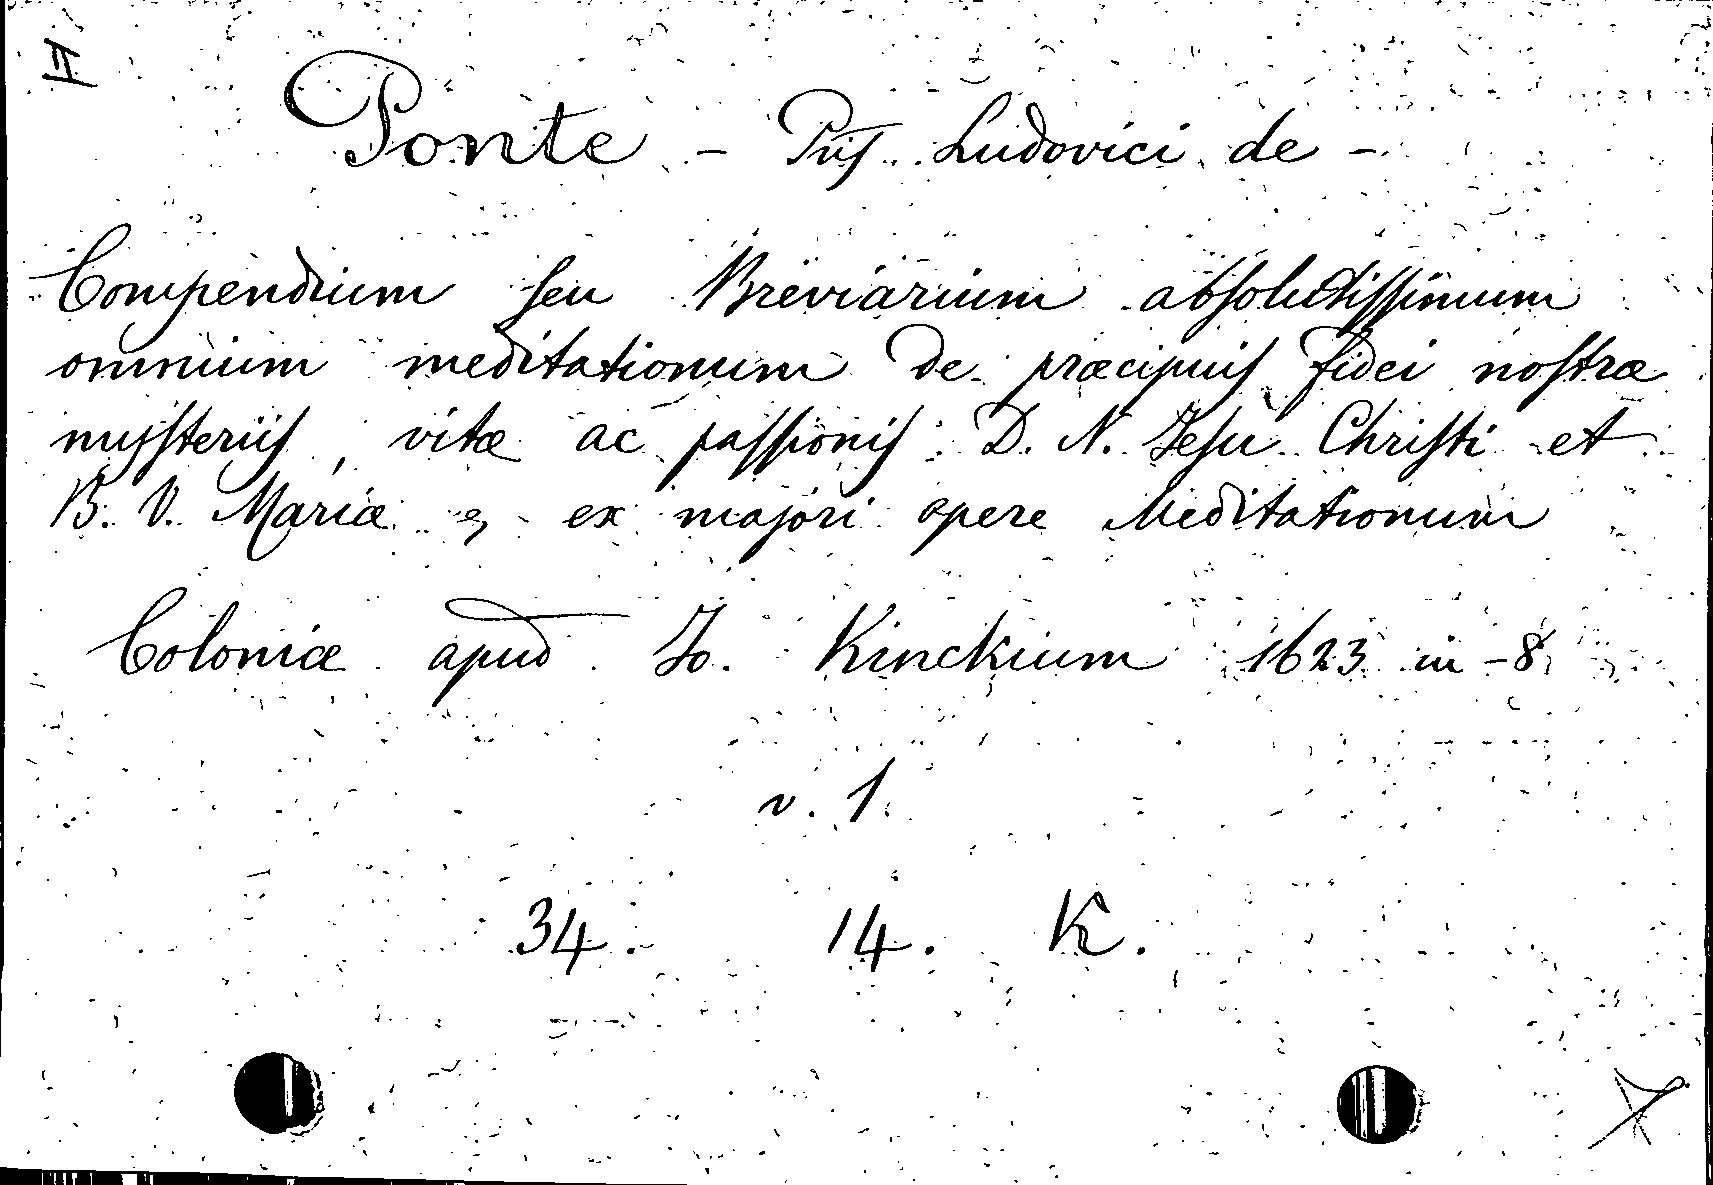 II
Ponte - Pris Ludovici de -
Compendium seu Breviarium absolutissimum
omnium meditationum de præcipuis fidei nostræ
mysteriis, vitæ ac passionis D. N. Jesu Christi et
B. V. Mariæ ex majori opere Meditationum
Coloniæ apud Jo. Kinckium 1623 in-8
v. 1.
34. 14. K.